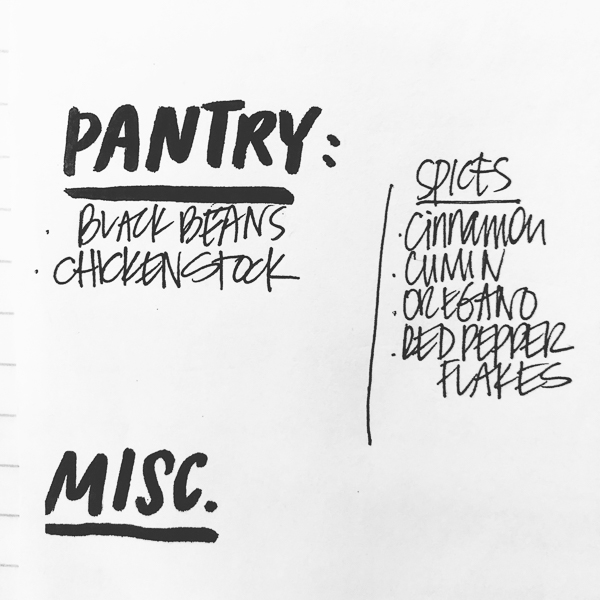 PANTRY:
· BLACK BEANS
· CHICKEN STOCK
SPICES
· Cinnamon
· CUMIN
· OREGANO
· RED PEPPER
FLAKES
MISC.